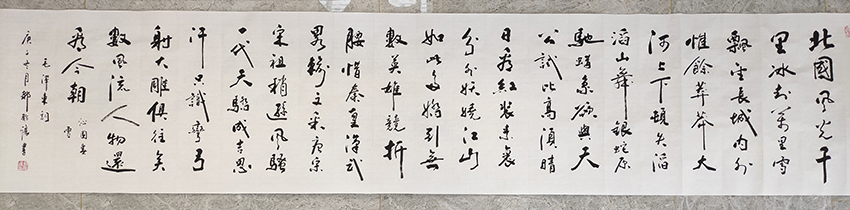 北國風光千
里冰封萬里雪
飄望長城内外
惟餘莽莽大
河上下頓失滔
滔山舞銀蛇原
馳蠟象欲與天
公試比高須晴
日看紅裝素裹
分外妖嬈江山
如此多嬌引無
數英雄競折
腰惜秦皇漢武
略輸文采唐宗
宋祖稍遜風騷
一代天驕成吉思
汗只識彎弓
射大雕俱往矣
數風流人物還
看今朝
沁園春
雪
毛澤東詞
庚子十月 書